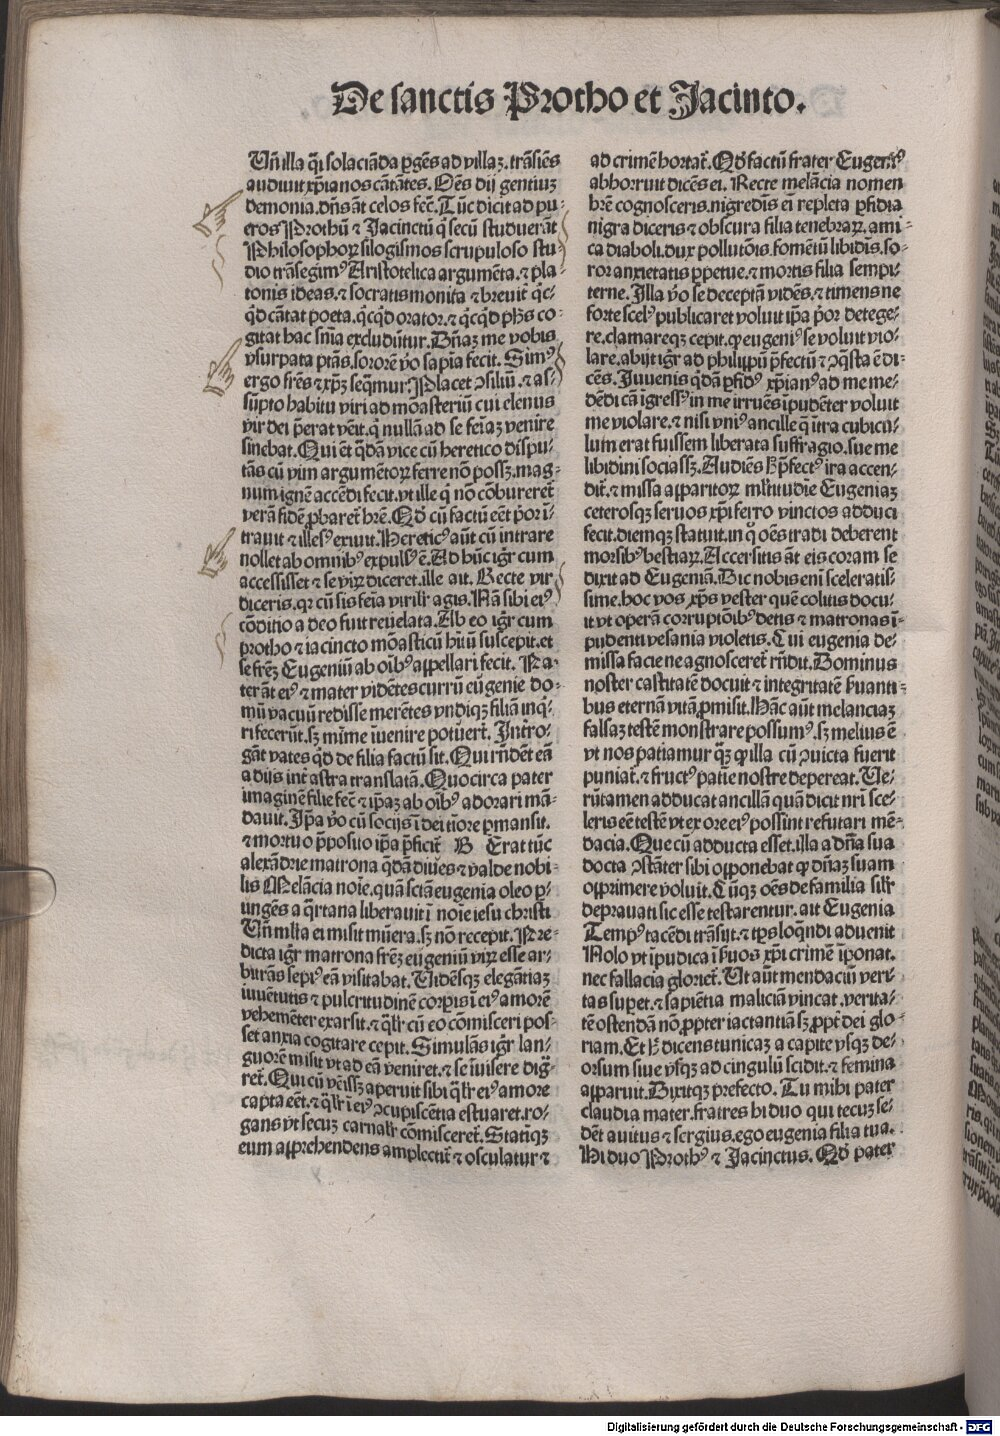 De sanctis Protho et Jacinto.
Uñ illa q̄i solaciãda ꝑgẽs ad villaꝫ. trãsiẽs
audiuit xp̄ianos cãtãtes. Oẽs dij gentiuꝫ
demonia. dñs ãt celos fec̄. Tũc dicit ad pu-
eros Prothũ ⁊ Jacinctũ q̄ secũ studuerãt
Philosophoꝝ silogismos scrupuloso stu-
dio trãsegimꝰ Aristotelica argumẽta. ⁊ pla-
tonis ideas. ⁊ socratis monita ⁊ breuit̃ q̇c-
q̇d cãtat poeta. q̇cq̇d orator. ⁊ q̇cq̇d ph̃s co-
gitat hac sñia excludũtur. Dñaꝫ me vobis
vsurpata ptãs. sororẽ ṽo sapĩa fecit. Simꝰ
ergo fr̃es ⁊ xp̄ꝫ seq̃mur. Placet ꝯsiliũ. ⁊ as-
sũpto habitu viri ad mõasteriũ cui elenus
vir dei p̃erat vẽit. q̇ nullã ad se feĩaꝫ venire
sinebat. Qui ẽt q̃dã vice cũ heretico dispu-
tãs cũ vim argumẽtoꝝ ferre nõ possꝫ. mag-
num ignẽ accẽdi fecit. vt ille q̇ nõ cõbureret̃
verã fidẽ ꝓbaret̃ h̃re. Qḋ cũ factũ eẽt p̃or ĩ-
trauit ⁊ illesꝰ exiuit. Hereticꝰ aũt cũ intrare
nollet ab omnibꝰ expulsꝰ ẽ. Ad hũc igr̃ cum
accessisset ⁊ se viꝝ diceret. ille ait. Recte vir
diceris. qꝛ cũ sis feĩa virilr̃ agis. Nã sibi eiꝰ
cõditio a deo fuit reuelata. Ab eo igr̃ cum
protho ⁊ iacincto mõasticũ hĩtũ suscepit. et
se fr̃eꝫ Eugeniũ ab oĩbꝰ appellari fecit. Pa-
ter ãt eiꝰ ⁊ mater vidẽtes currũ eũgenie do-
mũ vacuũ redisse merẽtes vndiqꝫ filiã inq̇-
ri fecerũt. sꝫ mĩme iuenire potuert̃. Intr̃o-
gãt vates q̇d de filia factũ sit. Qui rñdẽt eã
a dijs int̃ astra translatã. Quocirca pater
imaginẽ filie fec̄ ⁊ ip̃aꝫ ab oĩbꝰ adorari mã-
dauit. Ip̃a ṽo cũ socijs ĩ dei tĩore ꝑmansit.
⁊ mortuo p̃posito ip̃a p̃ficit̃ B Erat tũc
alexãdrie matrona q̃dã diũes ⁊ valde nobi-
lis Melãcia noĩe. quã sctã eugenia oleo ꝑ-
ungẽs a q̃rtana liberauit ĩ noĩe iesu christi
Uñ ml̃ta ei misit mũera. sꝫ nõ recepit. Pre-
dicta igr̃ matrona fr̃eꝫ eũgeniũ viꝝ esse ar-
burãs sepiꝰ eã visitabat. Uidẽsqꝫ elegãtiaꝫ
iuuẽtutis ⁊ pulcritudinẽ corꝑis ĩ eiꝰ amorẽ
vehemẽter exarsit. ⁊ q̃lr̃ cũ eo cõmisceri pos-
set anxia cogitare cepit. Simulãs igr̃ lan-
guorẽ misit vt ad eã veniret. ⁊ se iuisere dig̃-
ret̃. Qui cũ vẽissꝫ aperuit sibi q̃lr̃ eiꝰ amore
capta eẽt. ⁊ q̃lr̃ ĩ eiꝰ ꝯcupiscẽtia estuaret. ro-
gans vt secuꝫ carnalr̃ cõmisceret̃. Statiq̃ꝫ
eum apprehendens amplectit̃ ⁊ osculatur ⁊
ad crimẽ hortat̃. Qḋ factũ frater Eugeniꝰ
abhorruit dicẽs ei. Recte melãcia nomen
h̃re cognosceris. nigredĩs ei repleta ꝑfidia
nigra diceris ⁊ obscura filia tenebraꝝ. ami-
ca diaboli. dux pollutõis. fomẽtũ libidĩs. so-
ror anxietatis ꝑpetue. ⁊ mortis filia sempi-
terne. Illa ṽo se deceptã vidẽs. ⁊ timens ne
forte scelꝰ publicaret voluit ip̃a p̃or detege-
re. clamareqꝫ cepit. ꝙ eugeniꝰ se voluit vio-
lare. abijt igr̃ ad philippũ p̃fectũ ⁊ ꝯq̃sta ẽ di-
cẽs. Juuenis q̇dã ꝑfidꝰ xp̄ianꝰ ad me me-
dẽdi cã igressꝰ in me irruẽs ĩpudẽter voluit
me violare. ⁊ nisi vniꝰ ancille q̃ ĩtra cubicu-
lum erat fuissem liberata suffragio. sue me
libidini sociassꝫ. Audiẽs ḣ p̃fectꝰ ira accen-
dit̃. ⁊ missa apparitoꝝ ml̃titudĩe Eugeniaꝫ
ceterosqꝫ seruos xp̄i ferro vinctos adduci
fecit. diemqꝫ statuit. in q̇ oẽs tradi deberent
morsibꝰ bestiaꝝ. Accersitis ãt eis coram se
dixit ad Eugeniã. Dic nobis eni sceleratis-
sime. hoc vos xp̄s vester quẽ colitis docu-
it vt operã corrupõibꝰ detis ⁊ matronas ĩ-
pudenti vesania violetis. Cui eugenia de-
missa facie ne agnosceret̃ rñdit. Dominus
noster castitatẽ docuit ⁊ integritatẽ ẜuanti-
bus eternã vitã ꝓmisit. Hãc aũt melanciaꝫ
falsaꝫ testẽ monstrare possumꝰ. sꝫ melius ẽ
vt nos patiamur q̃ꝫ ꝙ illa cũ ꝯuicta fuerit
puniat̃. ⁊ fructꝰ patĩe nostre depereat. Ue-
rũtamen adducat ancillã quã dicit nr̃i sce-
leris eẽ testẽ vt ex ore eiꝰ possint refutari mẽ-
dacia. Que cũ adducta esset. illa a dñа sua
docta ꝯstãter sibi opponebat ꝙ dñaꝫ suam
opprimere voluit. Cũqꝫ oẽs de familia silr̃
deprauati sic esse testarentur. ait Eugenia
Tempꝰ tacẽdi trãsijt. ⁊ tp̃s loq̃ndi aduenit
Nolo vt ĩpudica ĩ ẜuos xp̄i crimẽ iponat.
nec fallacia gloriet̃. Ut aũt mendaciũ veri-
tas supet. ⁊ sapiẽtia maliciã vincat. verita-
tẽ ostendã nõ ꝓpter iactantiã sꝫ ꝓpt̃ dei glo-
riam. Et ḣ dicens tunicaꝫ a capite vsqꝫ de-
orsum siue vsqꝫ ad cingulũ scidit. ⁊ femina
apparuit. Dixitqꝫ prefecto. Tu mihi pater
claudia mater. fratres hi duo qui tecuꝫ se-
dẽt auitus ⁊ sergius. ego eugenia filia tua.
Hi duo Prothꝰ ⁊ Jacinctus. Qḋ pater
Digitalisierung gefördert durch die Deutsche Forschungsgemeinschaft - DFG